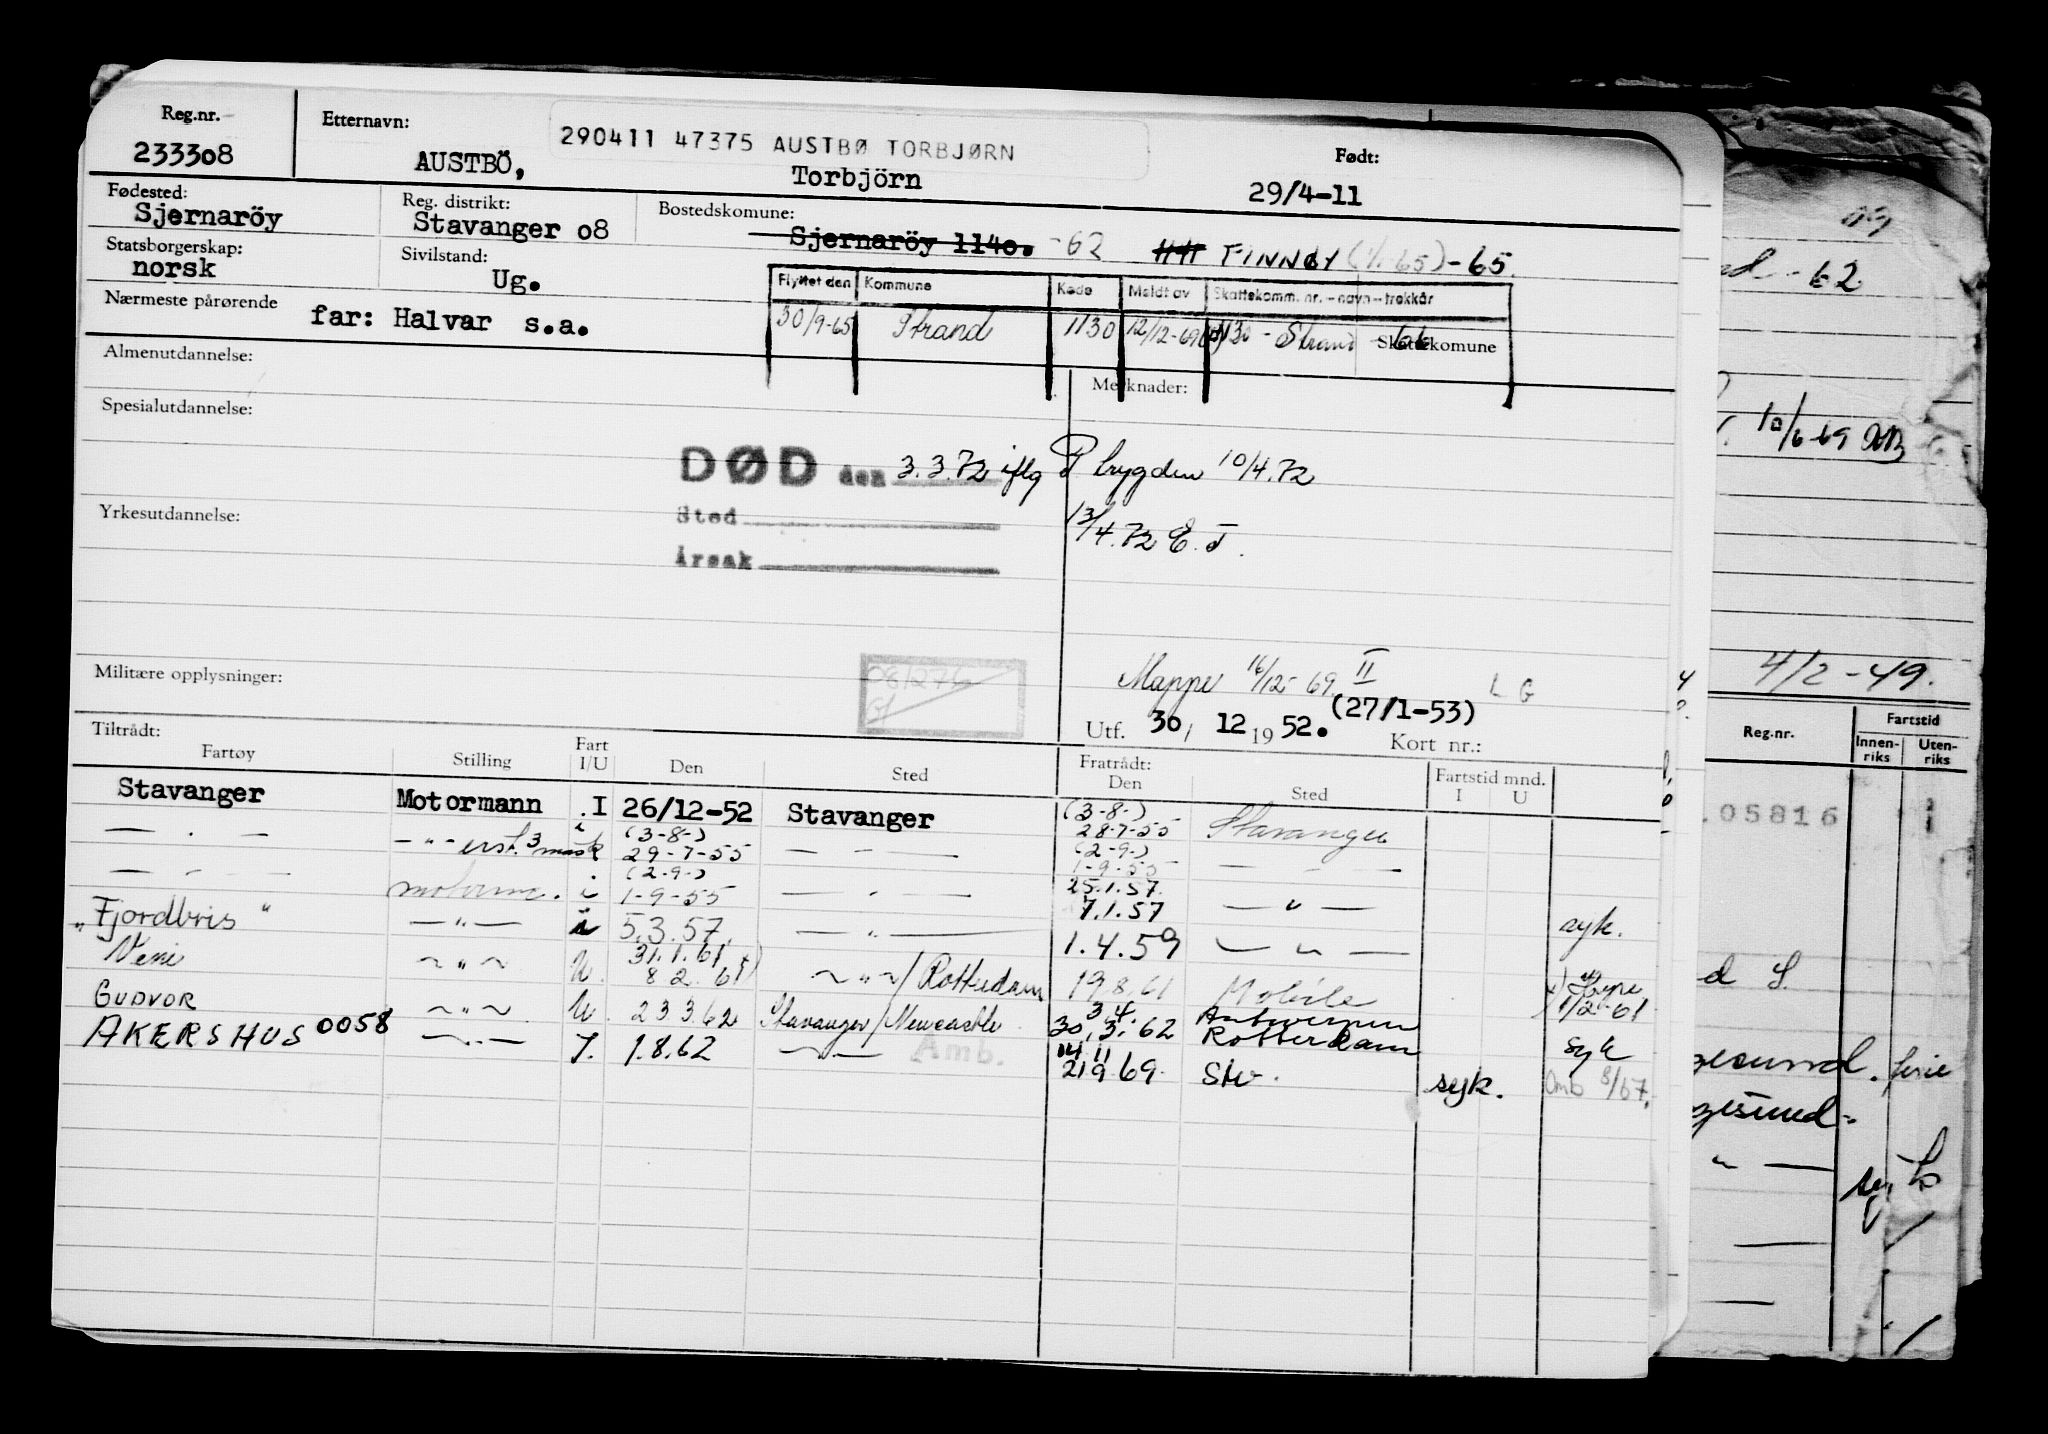 Reg.nr. Etternavn: 290411 47375 AUSTBØ TORBJØRN Født:
233308 AUSTBÖ, Torbjörn 29/4-11
Fødested: Reg. distrikt: Bostedskomune:
Sjernaröy Stavanger 08 Sjernaröy 1140. -62 FINNØY (1/1-65) -65.
Statsborgerskap: Sivilstand:
norsk Ug.
Flyttet den Kommune Kode Meldt av Skattekomm. nr.-navn-trekkår
Nærmeste pårørende far: Halvar s.a.
30/9-65 Strand 1130 12/12-69 1130 - Strand - 66 Skattekomune
Almenutdannelse: Merknader:
Spesialutdannelse:
DØD den 3.3.72 iflg P. trygden 10/4.72
Yrkesutdannelse: Sted 13/4.72 E.T.
Årsak
Militære opplysninger: 08/276 Mappe 16/12-69 II L G
Utf. 30, 12 19 52. (27/1-53) Kort nr.:
Tiltrådt: Fratrådt:
Fartøy Stilling Fart I/U Den Sted Den Sted Fartstid mnd. I U
Stavanger Motormann .I 26/12-52 Stavanger (3-8-) 28-7-55 Stavanger
— . — — " — erst. 3 mask i (3-8-) 29-7-55 — — (2-9-) 1-9-55 — —
— . — motorm. i (2-9-) 1-9-55 — . — 25.1.57
7.1.57 — " — syk.
"Fjordbris" — " — i 5.3.57. — " — 1.4.59 — " —
Veni ~ " ~ U. 31.1.61 x) 8 2. 61 ~ " ~ / Rotterdam 19 8.61 Mobile x) Hype 1/2-61
GUDVOR ~ " ~ U. 23 3.62 Stavanger/Newcastle 3 4. 30, 3. 62 Antwerpen Rotterdam syk
AKERSHUS 0058 — " — I. 1.8.62 — " — Amb. 14 11 21 9 69. Stv. syk. Omb 8/67.
nd - 62
10/6-69
4/2 - 49.
Reg.nr. Fartstid
Innen-riks Uten-riks
.05816
d S.
gesund. ferie
gesund-
" —